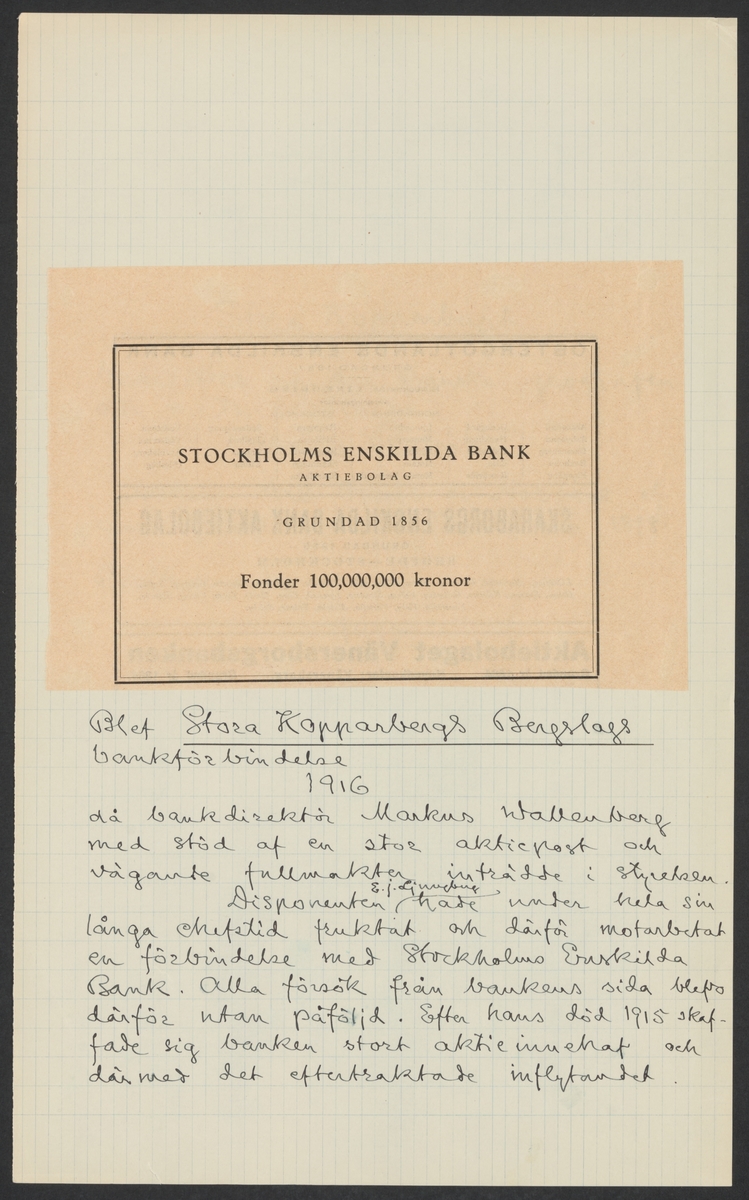 STOCKHOLMS ENSKILDA BANK
AKTIEBOLAG
GRUNDAD 1856
Fonder 100,000,000 kronor
Blef Stora Kopparbergs Bergslags
bankförbindelse
1916
då bankdirektör Markus Wallenberg
med stöd af en stor aktiepost och
vägande fullmakter inträdde i styrelsen.
E.J. Ljungberg
Disponenten hade under hela sin
långa chefstid fruktat och därför motarbetat
en förbindelse med Stockholms Enskilda
Bank. Alla försök från bankens sida blefvo
därför utan påföljd. Efter hans död 1915 skaf-
fade sig banken stort aktieinnehaf och
därmed det eftertraktade inflytandet.